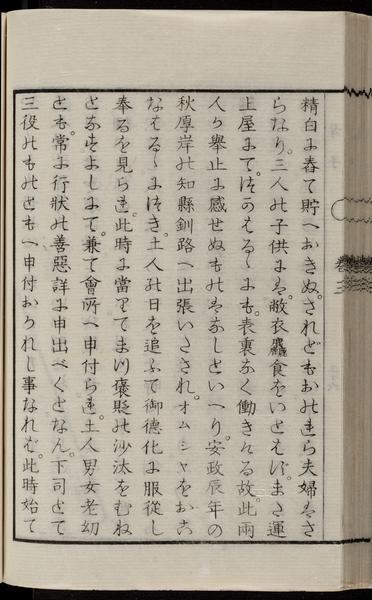 精白に舂て貯へおきぬ。されどもおのれら夫婦はさ
らなり。三人の子供には。敝衣麤食をいとはず。まさ運
上屋にて。つかはるゝにも。表裏なく働きける故。此兩
人か擧止に感せぬものはなしといへり。安政辰年の
秋厚岸の知縣釧路へ出張いたされ。オムシヤをおこ
なはるゝにつき。土人の日を追ふて御德化に服從し
奉るを見られ。此時に當りてまつ褒貶の沙汰をむね
となすよしにて。兼て會所へ申付られ。土人男女老幼
とも。常に行狀の善惡詳に申出べくとなん。下司とて
三役のものどもへ申付おかれし事なれば。此時始て